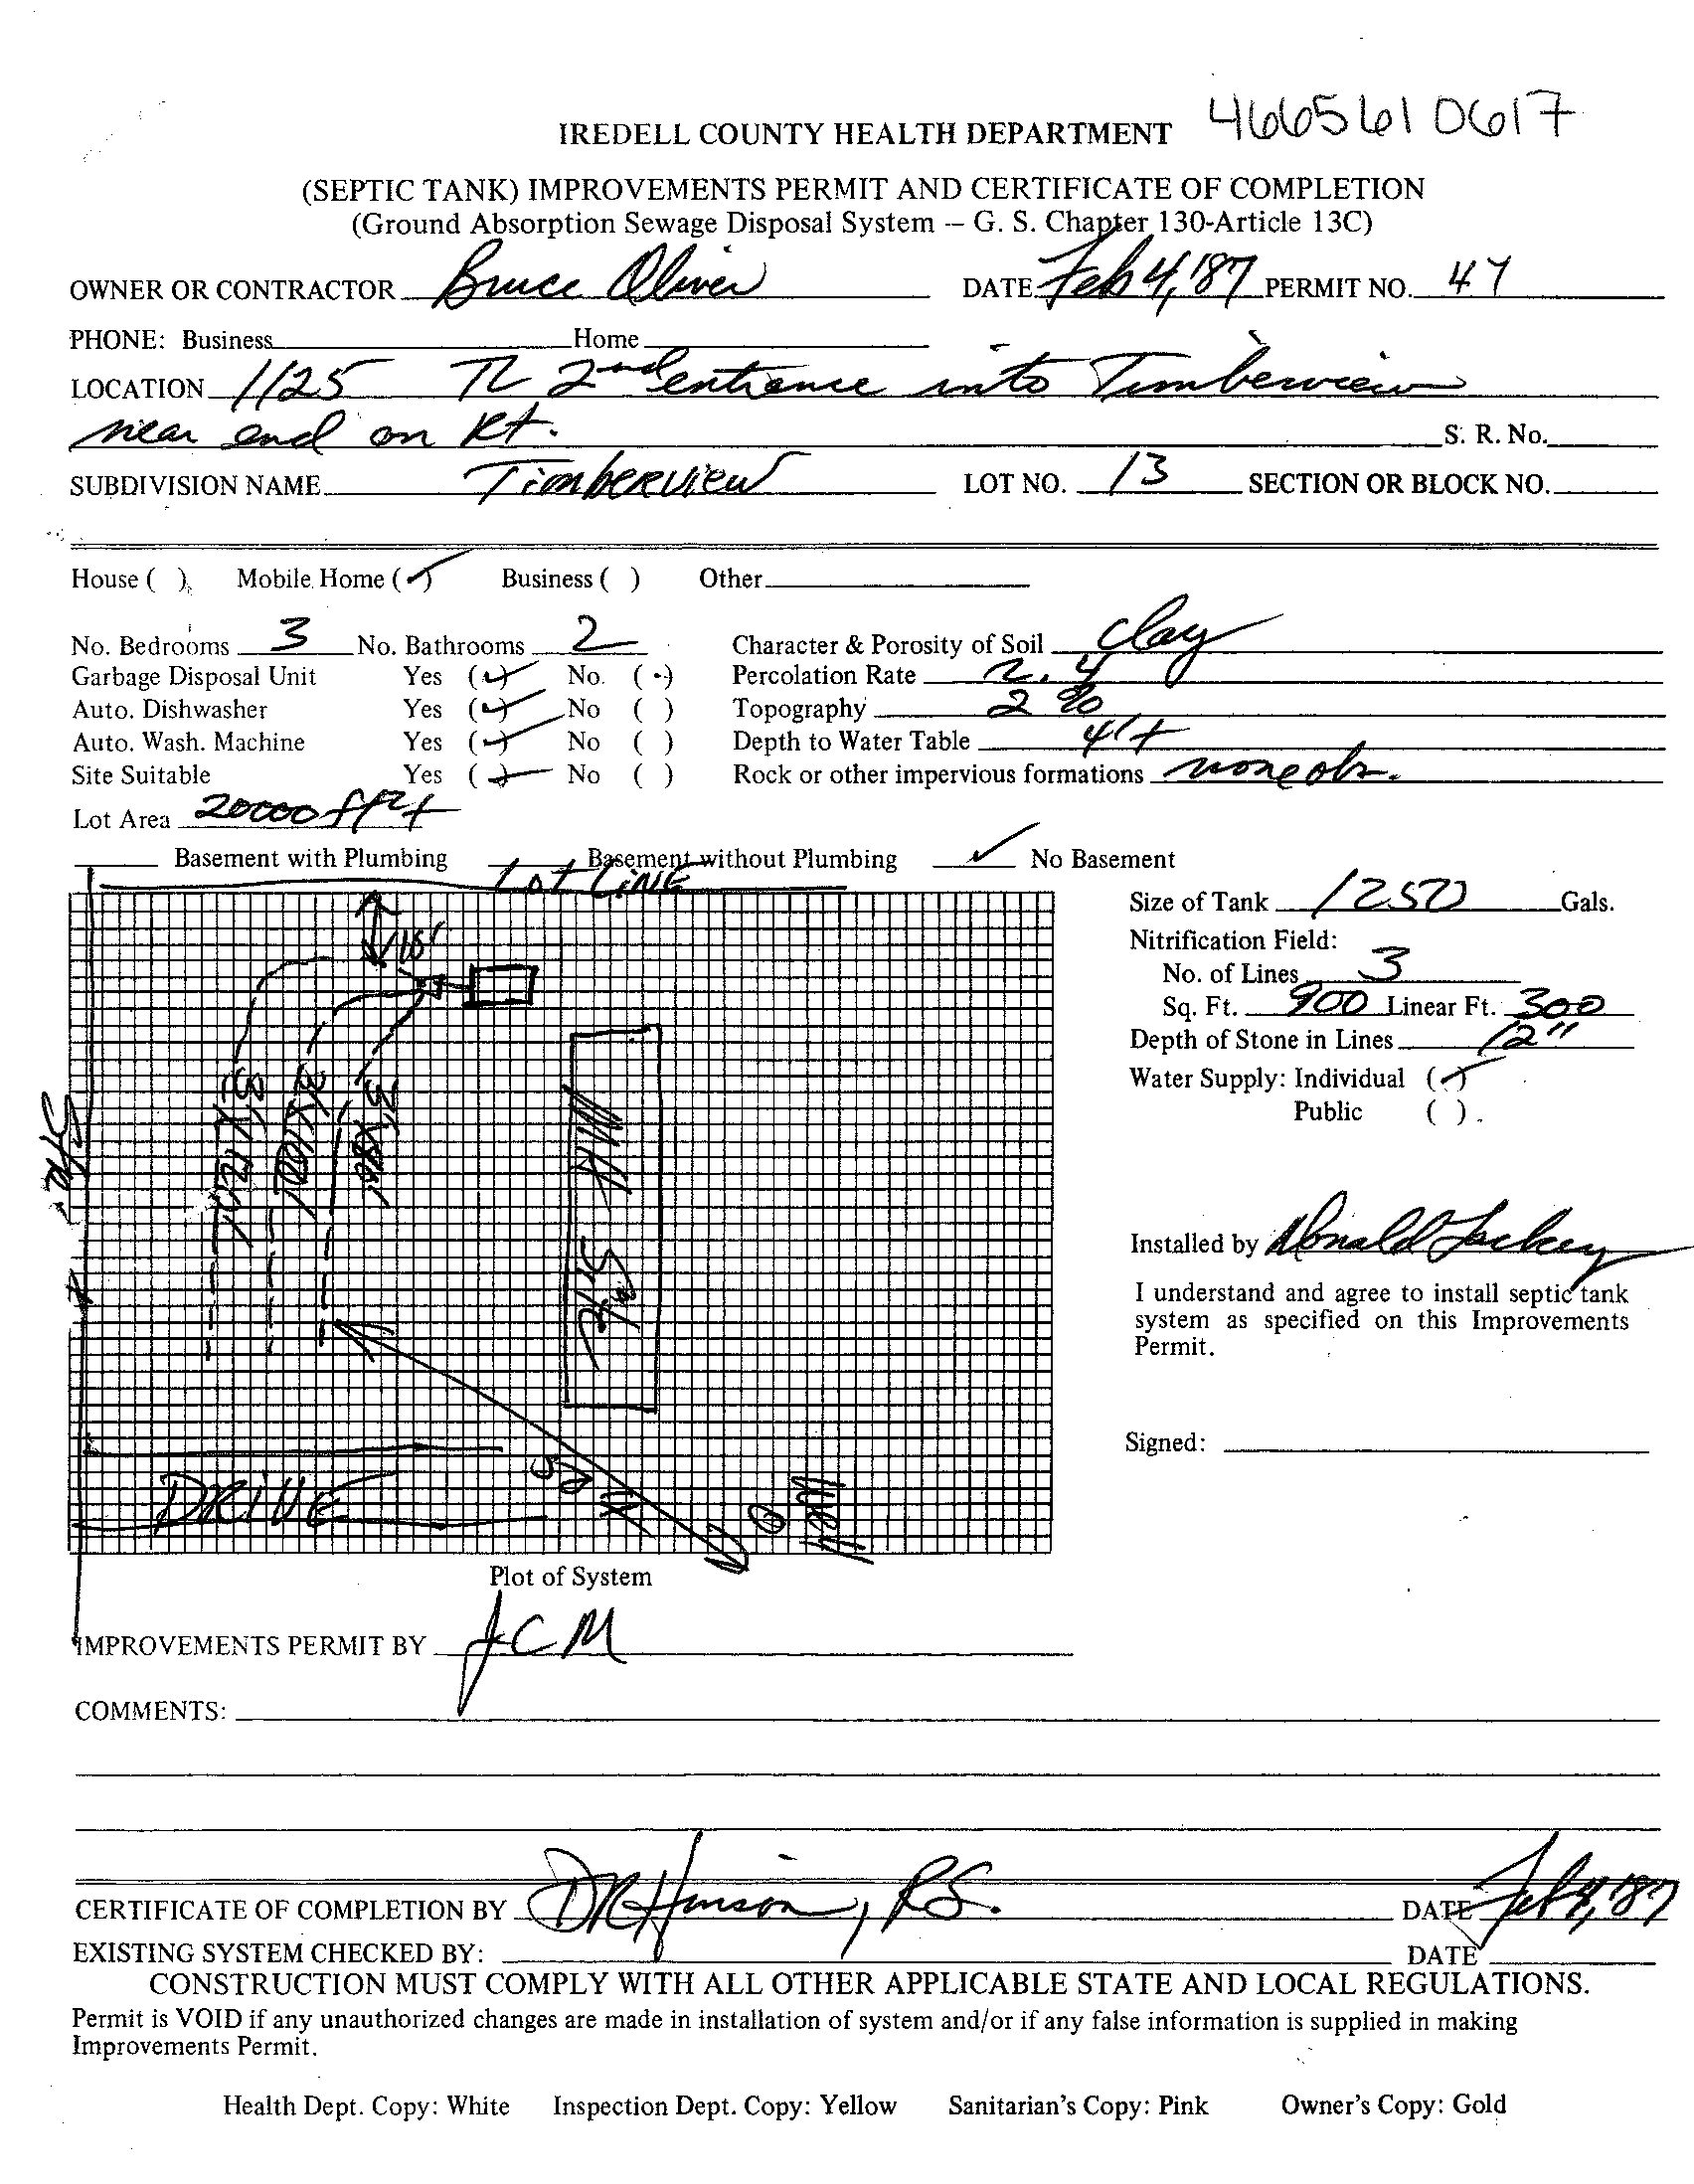 4665610617
IREDELL COUNTY HEALTH DEPARTMENT
(SEPTIC TANK) IMPROVEMENTS PERMIT AND CERTIFICATE OF COMPLETION
(Ground Absorption Sewage Disposal System -- G. S. Chapter 130-Article 13C)
OWNER OR CONTRACTOR Bruce Oliver DATE Feb 4, '87 PERMIT NO. 47
PHONE: Business Home
LOCATION 1125 TL 2nd entrance into Timberview
near end on Rt. S. R. No.
SUBDIVISION NAME Timberview LOT NO. 13 SECTION OR BLOCK NO.
House ( ) Mobile Home (✓) Business ( ) Other
No. Bedrooms 3 No. Bathrooms 2 Character & Porosity of Soil clay
Garbage Disposal Unit Yes (✓) No. ( ) Percolation Rate 2.4
Auto. Dishwasher Yes (✓) No ( ) Topography 2 %
Auto. Wash. Machine Yes (✓) No ( ) Depth to Water Table 4'+
Site Suitable Yes (✓) No ( ) Rock or other impervious formations none obs.
Lot Area 20000 ft2+
Basement with Plumbing Basement without Plumbing ✓ No Basement
Lot Line
Size of Tank 1250 Gals.
15'
Nitrification Field:
No. of Lines 3
Sq. Ft. 900 Linear Ft. 300
Depth of Stone in Lines 12"
Water Supply: Individual (✓)
Public ( )
3'x120'
3'x100'
3'x80'
MH
Installed by Donald Lackey
I understand and agree to install septic tank
system as specified on this Improvements
Permit.
Signed:
DRIVE
Well
Plot of System
IMPROVEMENTS PERMIT BY JCM
COMMENTS:
CERTIFICATE OF COMPLETION BY DR Hinson, RS. DATE Feb 4, '87
EXISTING SYSTEM CHECKED BY: DATE
CONSTRUCTION MUST COMPLY WITH ALL OTHER APPLICABLE STATE AND LOCAL REGULATIONS.
Permit is VOID if any unauthorized changes are made in installation of system and/or if any false information is supplied in making
Improvements Permit.
Health Dept. Copy: White Inspection Dept. Copy: Yellow Sanitarian's Copy: Pink Owner's Copy: Gold